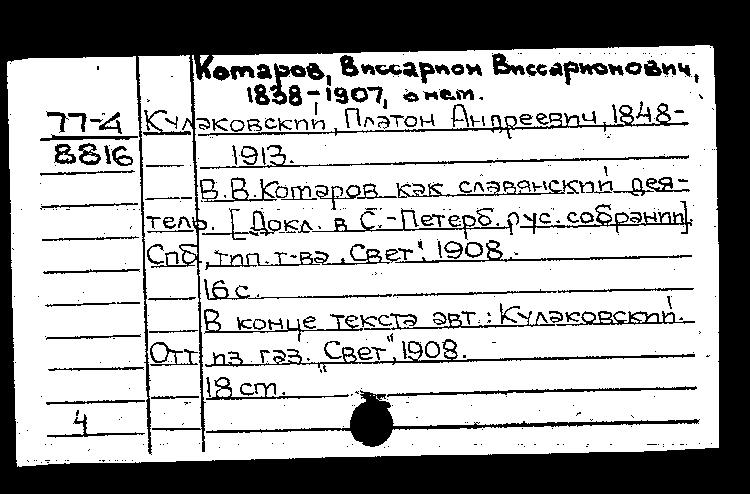 Котаров, Виссарион Виссарионович,
1838-1907, о нем.
77-4 Кулаковский, Платон Андреевич, 1848-
8816 1913.
В.В.Котаров как славянский дея-
тель. [Докл. в С.-Петерб. рус. собрании].
Спб., тип. т-ва "Свет", 1908.
16 с.
В конце текста авт.: Кулаковский.
Отт. из газ. "Свет", 1908.
18 ст.
4